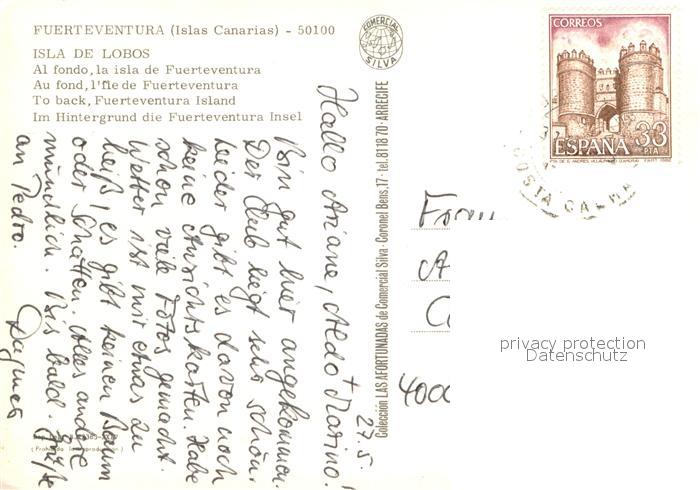 FUERTEVENTURA (Islas Canarias) - 50100
ISLA DE LOBOS
Al fondo, la isla de Fuerteventura
Au fond, l'île de Fuerteventura
To back, Fuerteventura Island
Im Hintergrund die Fuerteventura Insel
COMERCIAL
SILVA
Hallo Ariane, Aldo + Marino!
27.5.
Bin gut hier angekommen.
Der Club liegt sehr schön,
leider gibt es davon noch
keine Ansichtskarten. Habe
schon viele Fotos gemacht.
Wetter ist mir etwas zu
heiß, es gibt keinen Baum
oder Schatten. Alles andere
mündlich. Bis bald. Grüße
an Pedro.
Dagmar
Colección LAS AFORTUNADAS de Comercial Silva - Coronel Bens, 17 - tel. 81 18 70 - ARRECIFE
CORREOS
ESPAÑA
33
PTA
COSTA CALMA
400
privacy protection
Datenschutz